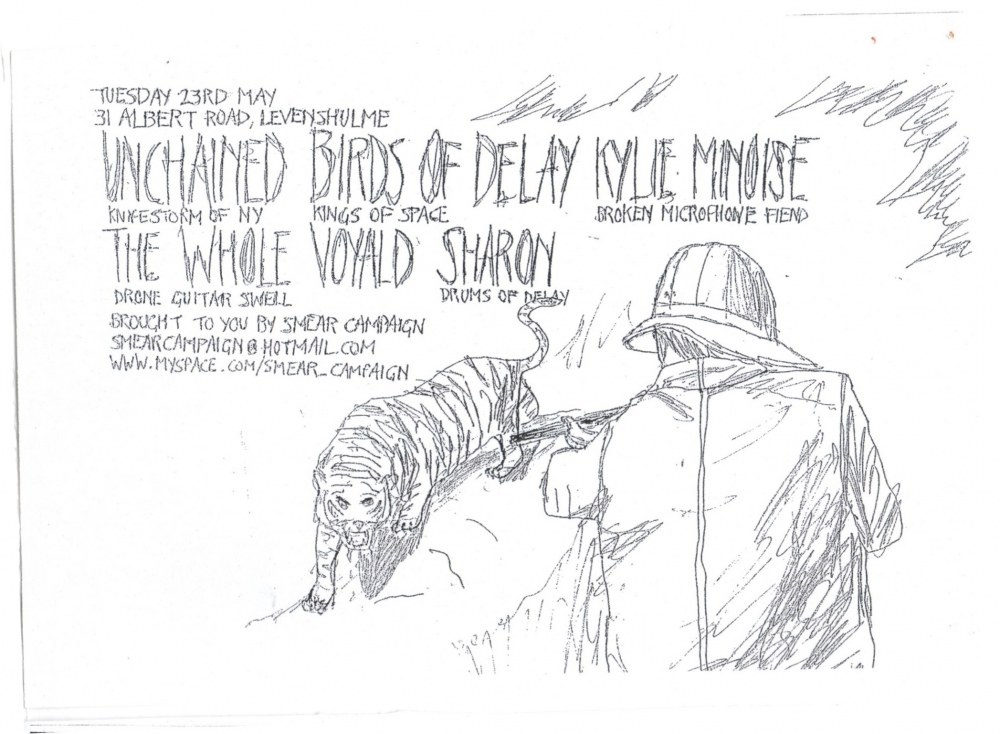 TUESDAY 23RD MAY
31 ALBERT ROAD, LEVENSHULME
UNCHAINED BIRDS OF DELAY KYLIE MINOISE
KNIFESTORM OF NY KINGS OF SPACE BROKEN MICROPHONE FIEND
THE WHOLE VOYALD SHARON
DRONE GUITAR SWELL DRUMS OF DELAY
BROUGHT TO YOU BY SMEAR CAMPAIGN
SMEARCAMPAIGN@HOTMAIL.COM
WWW.MYSPACE.COM/SMEAR_CAMPAIGN